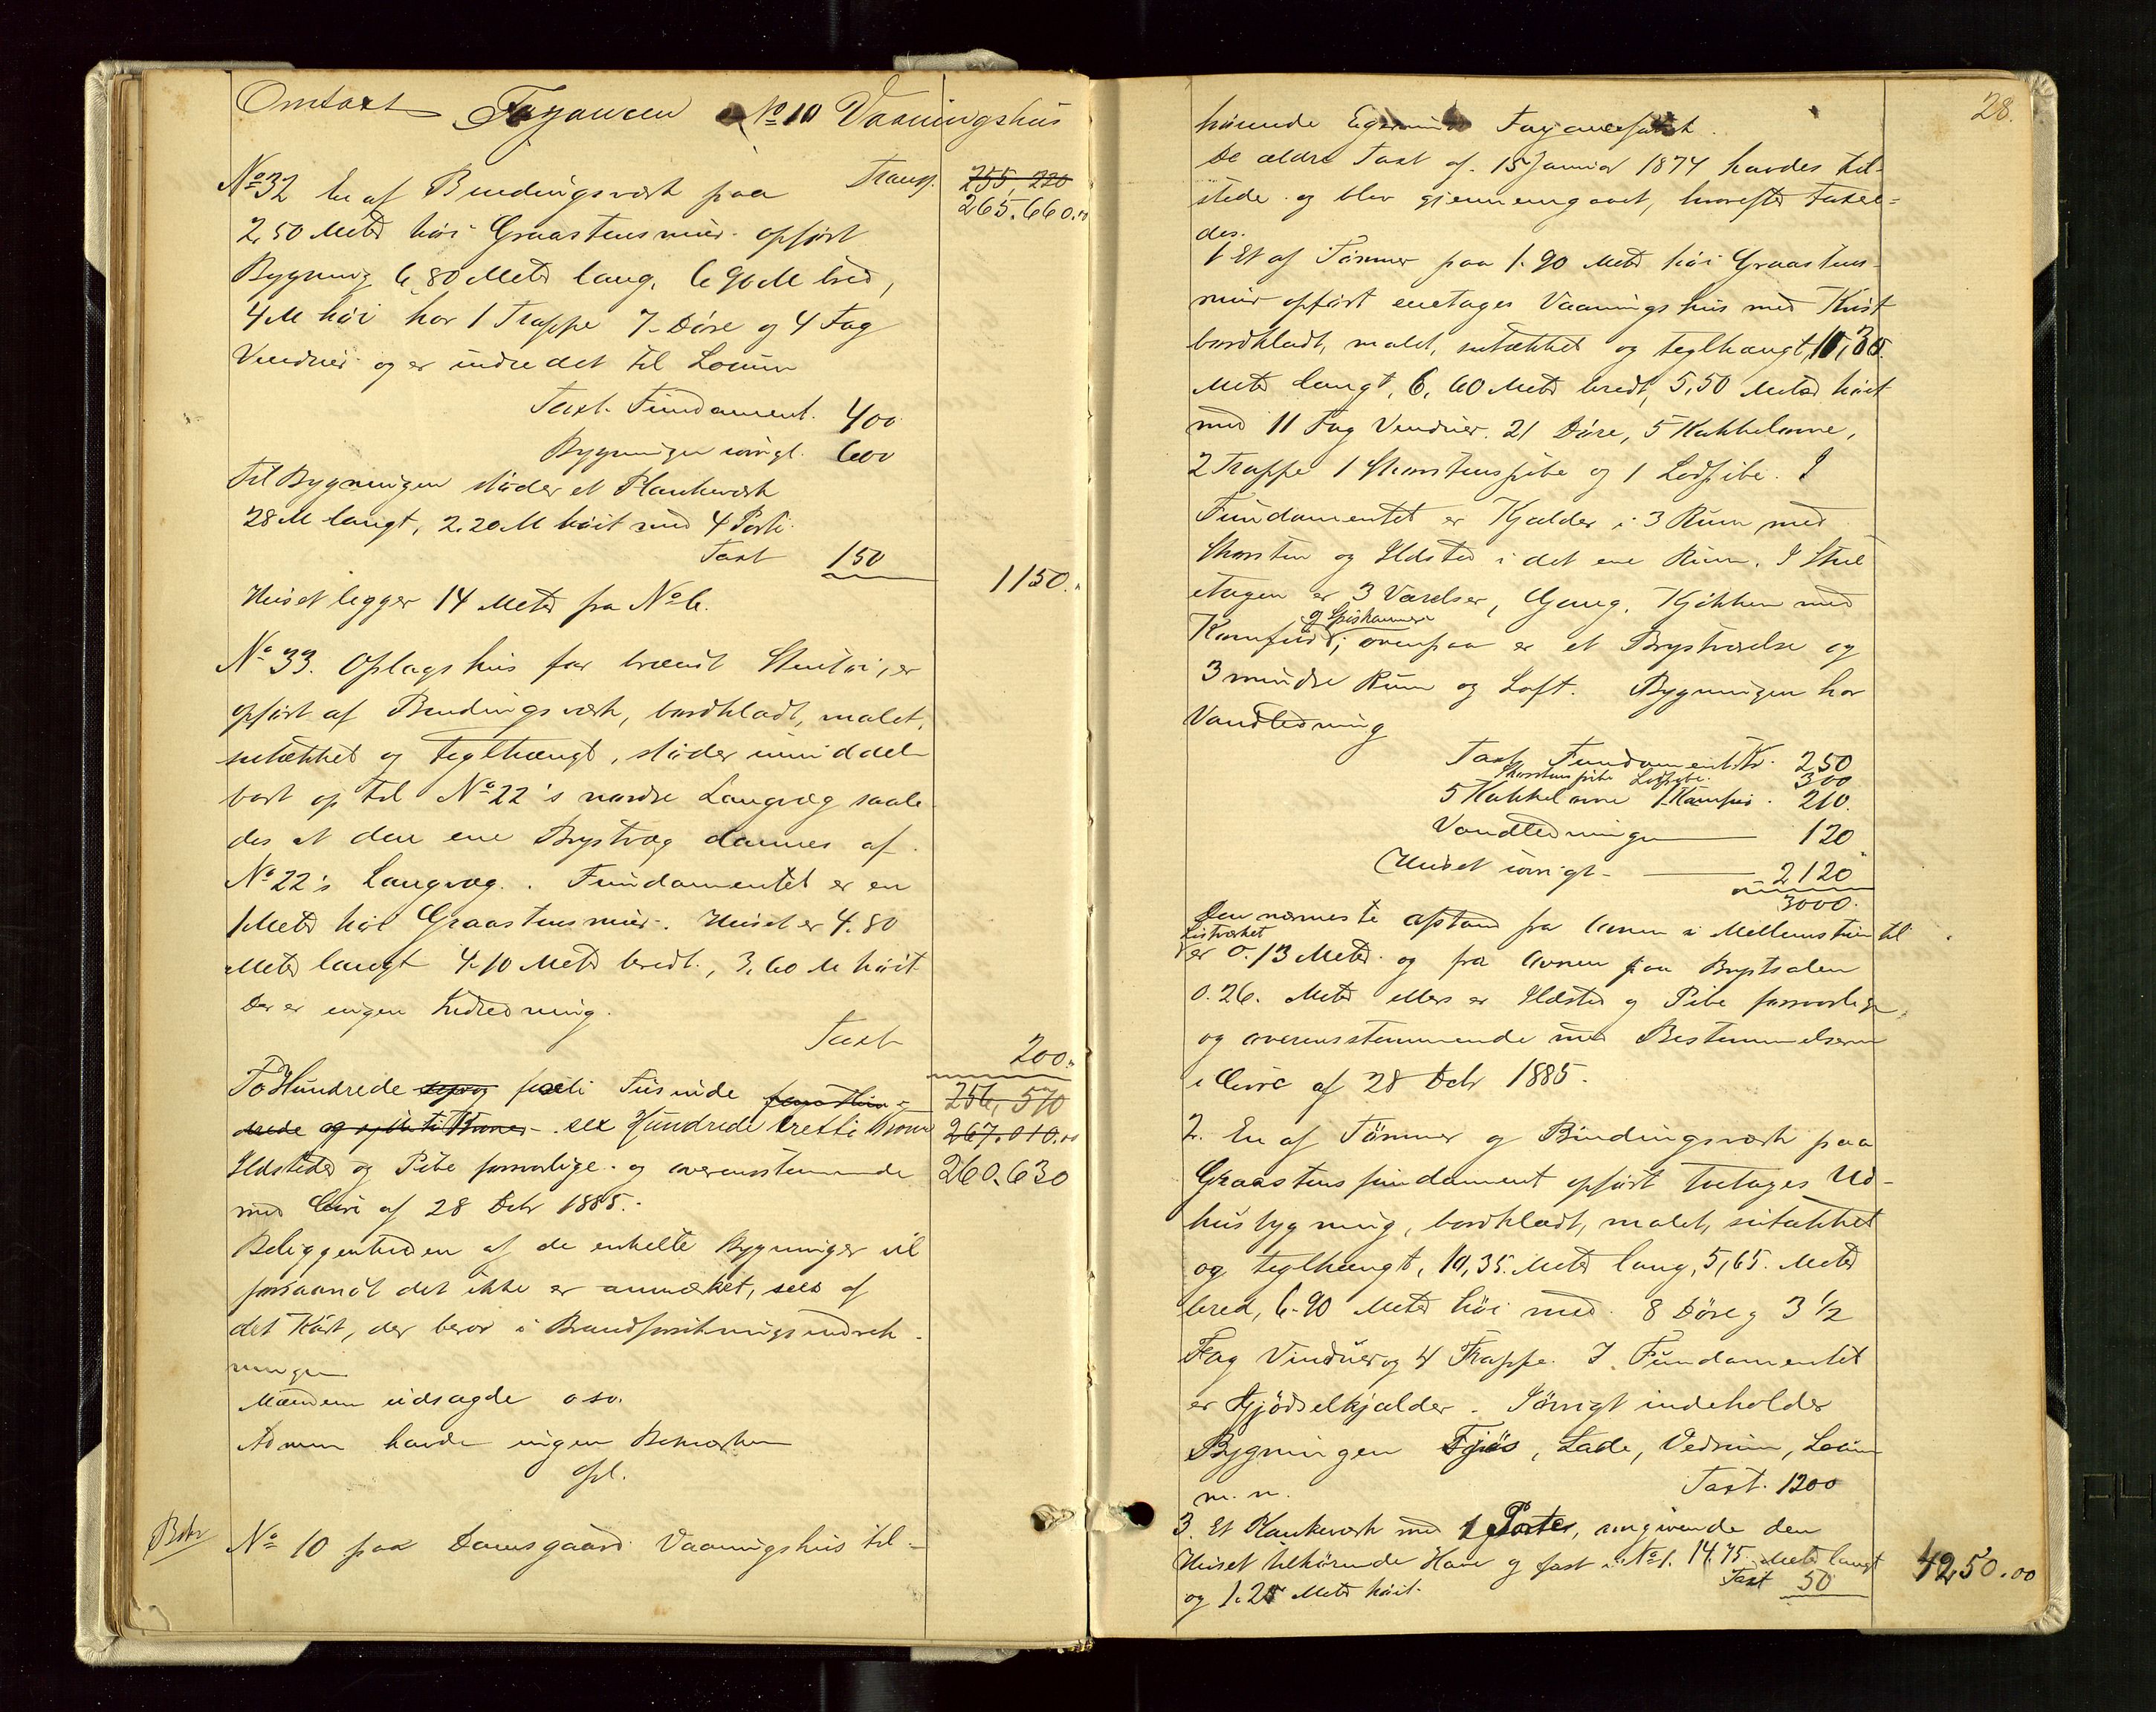 Omtaxt Fayancen No 10 Vaaningshus
Transp. 255,220
No 32 En af Bindingsværk paa
265.660.00
2,50 Meter høi Graastensmur opført
Bygning 6,80 Meter lang, 6,90 M bred,
4 M høi har 1 Trappe 7 Døre og 4 Fag
Vinduer og er indredet til Locum
Taxt Fundament. 400
Bygningen iøvrigt. 600
Til Bygningen støder et Plankeværk
28 M langt, 2.20 M høit med 4 Porte
Taxt 150
1150.
Huset ligger 14 Meter fra No 6.
No 33. Oplagshus for brændt Stentøi, er
opført af Bindingsværk, bordklædt, malet,
sutækket og teglhængt, støder umiddel
bart op til No 22's nordre Langvæg saale
des at den ene Brystvæg dannes af
No 22's Langvæg. Fundamentet er en
1 Meter høi Graastensmur. Huset er 4.80
Meter langt 4.10 Meter bredt, 3,60 M høit
Der er ingen Indredning.
Taxt
200.
To Hundrede sexti Tusinde
256,570
drede og sytti Kroner sex Hundrede tretti Kroner
267.010.00
Ildsteder og Pibe forsvarlige og overensstemmende
260.630
med Circ af 28 Debr 1885.
Beliggenheden af de enkelte Bygninger vil
forsaavidt det ikke er anmærket, sees af
det Kart, der beror i Brandforsikringsindret
ningen
Mændene udsagde o.s.v.
Admin havde ingen Bemærkn
Opl.
No 10 paa Damsgaard Vaaningshus til-
28.
hørende Egersunds Fayancefabrik.
De ældre Taxt af 15 Januar 1874 havdes til-
stede og blev gjennemgaaet, hvorefter taxer-
des.
1 Et af Tømmer paa 1.90 Meter høi Graastens-
mur opført enetages Vaaningshus med Kvist
bordklædt, malet, sutækket og teglhængt, 10,30
Meter langt, 6,60 Meter bredt, 5,50 Meter høit
med 11 Fag Vinduer. 21 Døre, 5 Kakkelovne,
2 Trappe 1 Skorstenspibe og 1 Lodpibe. I
Fundamentet er Kjælder i 3 Rum med
Skorsten og Ildsted i det ene Rum. I Stue
etagen er 3 Værelser, Gang, Kjøkken med
og Spiskammer
Komfur; ovenpaa er et Brystværelse og
3 mindre Rum og Loft. Bygningen har
Vandledning
Taxt Fundament Kr. 250
Skorstenspibe Lodpibe. 300
5 Kakkelovne 1 Komfur. 210.
Vandledningen 120
Huset iøvrigt 2120
3000.
Den nærmeste afstand fra Ovnen i Mellemstuen til
Listværket
er 0.13 Meter og fra Ovnen paa Brystsalen
0.26. Meter ellers er Ildsted og Pibe forsvarlige
og overensstemmende med Bestemmelserne
i Circ af 28 Debr 1885.
2. En af Tømmer og Bindingsværk paa
Graastensfundament opført toetages Ud-
husbygning, bordklædt, malet, sutækket
og teglhængt, 10,35 Meter lang, 5,65 Meter
bred, 6.90 Meter høi med 8 Døre og 3 1/2
Fag Vinduer og 4 Trappe. I Fundamentet
er Gjødselkjælder. Iøvrigt indeholder
Bygningen Fjøs, Lade, Vedrum, Locum
m. m. Taxt. 1200
3. Et Plankeværk med 1 Porte, omgivende den
Huset tilhørende Have og fast i No 1. 14.75 Meter langt
og 1.25 Meter høit. Taxt 50
4250.00